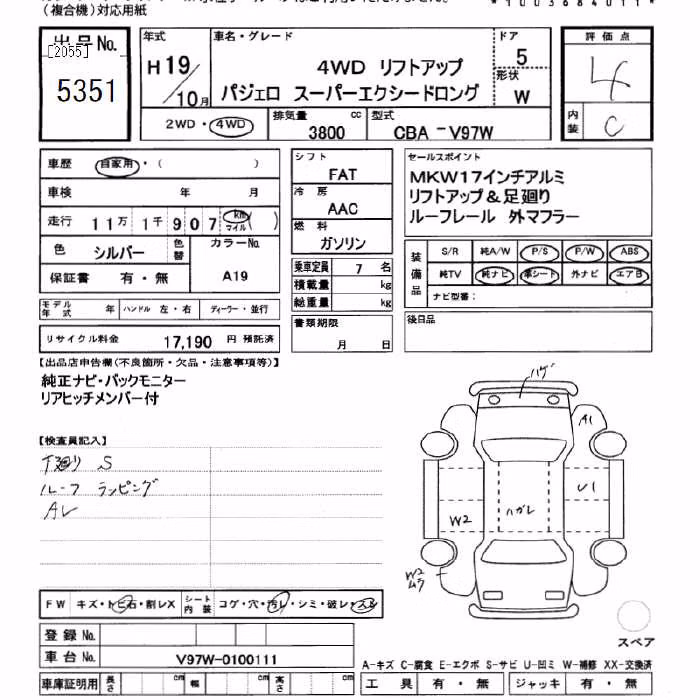 (複合機)対応用紙
*1003684011*
出品No.
[2055]
5351
年式
H19/10月
車名・グレード
4WD リフトアップ
パジェロ スーパーエクシードロング
ドア
5
形状
W
評価点
4
内装
C
2WD・4WD
排気量
3800 cc
型式
CBA-V97W
車歴 自家用・( )
車検 年 月
走行 11万1千907 km マイル ( )
色 シルバー 色替 カラーNo. A19
保証書 有・無
シフト
FAT
冷房
AAC
燃料
ガソリン
乗車定員 7 名
積載量 kg
総重量 kg
書類期限
月 日
セールスポイント
MKW17インチアルミ
リフトアップ&足廻り
ルーフレール 外マフラー
装備品
S/R 純A/W P/S P/W ABS
純TV 純ナビ 革シート 外ナビ エアB
ナビ型番:
モデル年式 年 ハンドル 左・右 ディーラー・並行
リサイクル料金 17,190 円 預託済
後日品
【出品店申告欄(不良箇所・欠品・注意事項等)】
純正ナビ・バックモニター
リアヒッチメンバー付
【検査員記入】
下廻り S
ルーフ ラッピング
AL
ハゲ
A1
U1
W2
ハガレ
W2
ムラ
FW キズ・トビ石・割レX シート内装 コゲ・穴・汚レ・シミ・破レ・スレ
登録No.
車台No. V97W-0100111
車庫証明用 長さ cm 幅 cm 高さ cm
スペア
A-キズ C-腐食 E-エクボ S-サビ U-凹ミ W-補修 XX-交換済
工具 有・無 ジャッキ 有・無